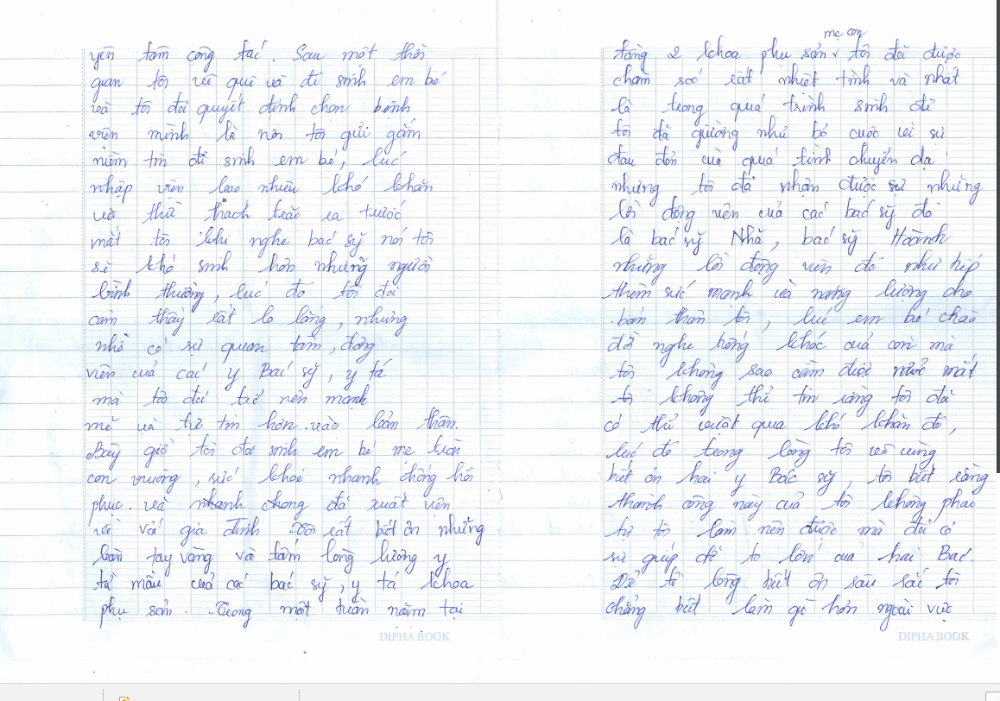 yên tâm công tác. Sau một thời
gian tôi về quê và đi sinh em bé
và tôi đã quyết định chọn bệnh
viện mình là nơi tôi gửi gắm
niềm tin để sinh em bé, lúc
nhập viện bao nhiêu khó khăn
và thử thách trước ra trước
mắt tôi khi nghe bác sỹ nói tôi
sẽ khó sinh hơn những người
bình thường, lúc đó tôi đã
cảm thấy rất lo lắng, nhưng
nhờ có sự quan tâm, động
viên của các y Bác sỹ, y tá
mà tôi đã trở nên mạnh
mẽ và tự tin hơn vào bản thân.
Bây giờ tôi đã sinh em bé mẹ tròn
con vuông, sức khoẻ nhanh chóng hồi
phục và nhanh chóng đã xuất viện
về với gia đình tôi rất biết ơn những
bàn tay vàng và tấm lòng lương y
từ mẫu của các bác sỹ, y tá khoa
phụ sản. Trong một tuần nằm tại
DIPHABOOK
tầng 2 khoa phụ sản mẹ con tôi đã được
chăm sóc rất nhiệt tình và nhất
là trong quá trình sinh đẻ
tôi đã gường như bỏ cuộc vì sự
đau đớn của quá trình chuyển dạ
nhưng tôi đã nhận được sự những
lời động viên của các bác sỹ đó
là bác sỹ Nhã, bác sỹ Hoành
những lời động viên đó như tiếp
thêm sức mạnh và năng lượng cho
bản thân tôi, lúc em bé chào
đời nghe tiếng khóc của con mà
tôi không sao cầm được nước mắt
tôi không thể tin rằng tôi đã
có thể vượt qua khó khăn đó,
lúc đó trong lòng tôi vô cùng
biết ơn hai y Bác sỹ, tôi biết rằng
thành công này của tôi không phải
tự tôi làm nên được mà đã có
sự giúp đỡ to lớn của hai Bác.
Để tỏ lòng biết ơn sâu sắc tôi
chẳng biết làm gì hơn ngoài việc
DIPHABOOK